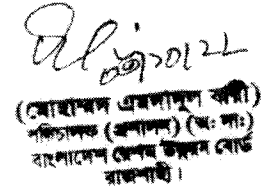 (মোহাম্মদ এমদাদুল বারী)
পরিচালক (প্রশাসন) (অঃ দাঃ)
বাংলাদেশ রেশম উন্নয়ন বোর্ড
রাজশাহী।